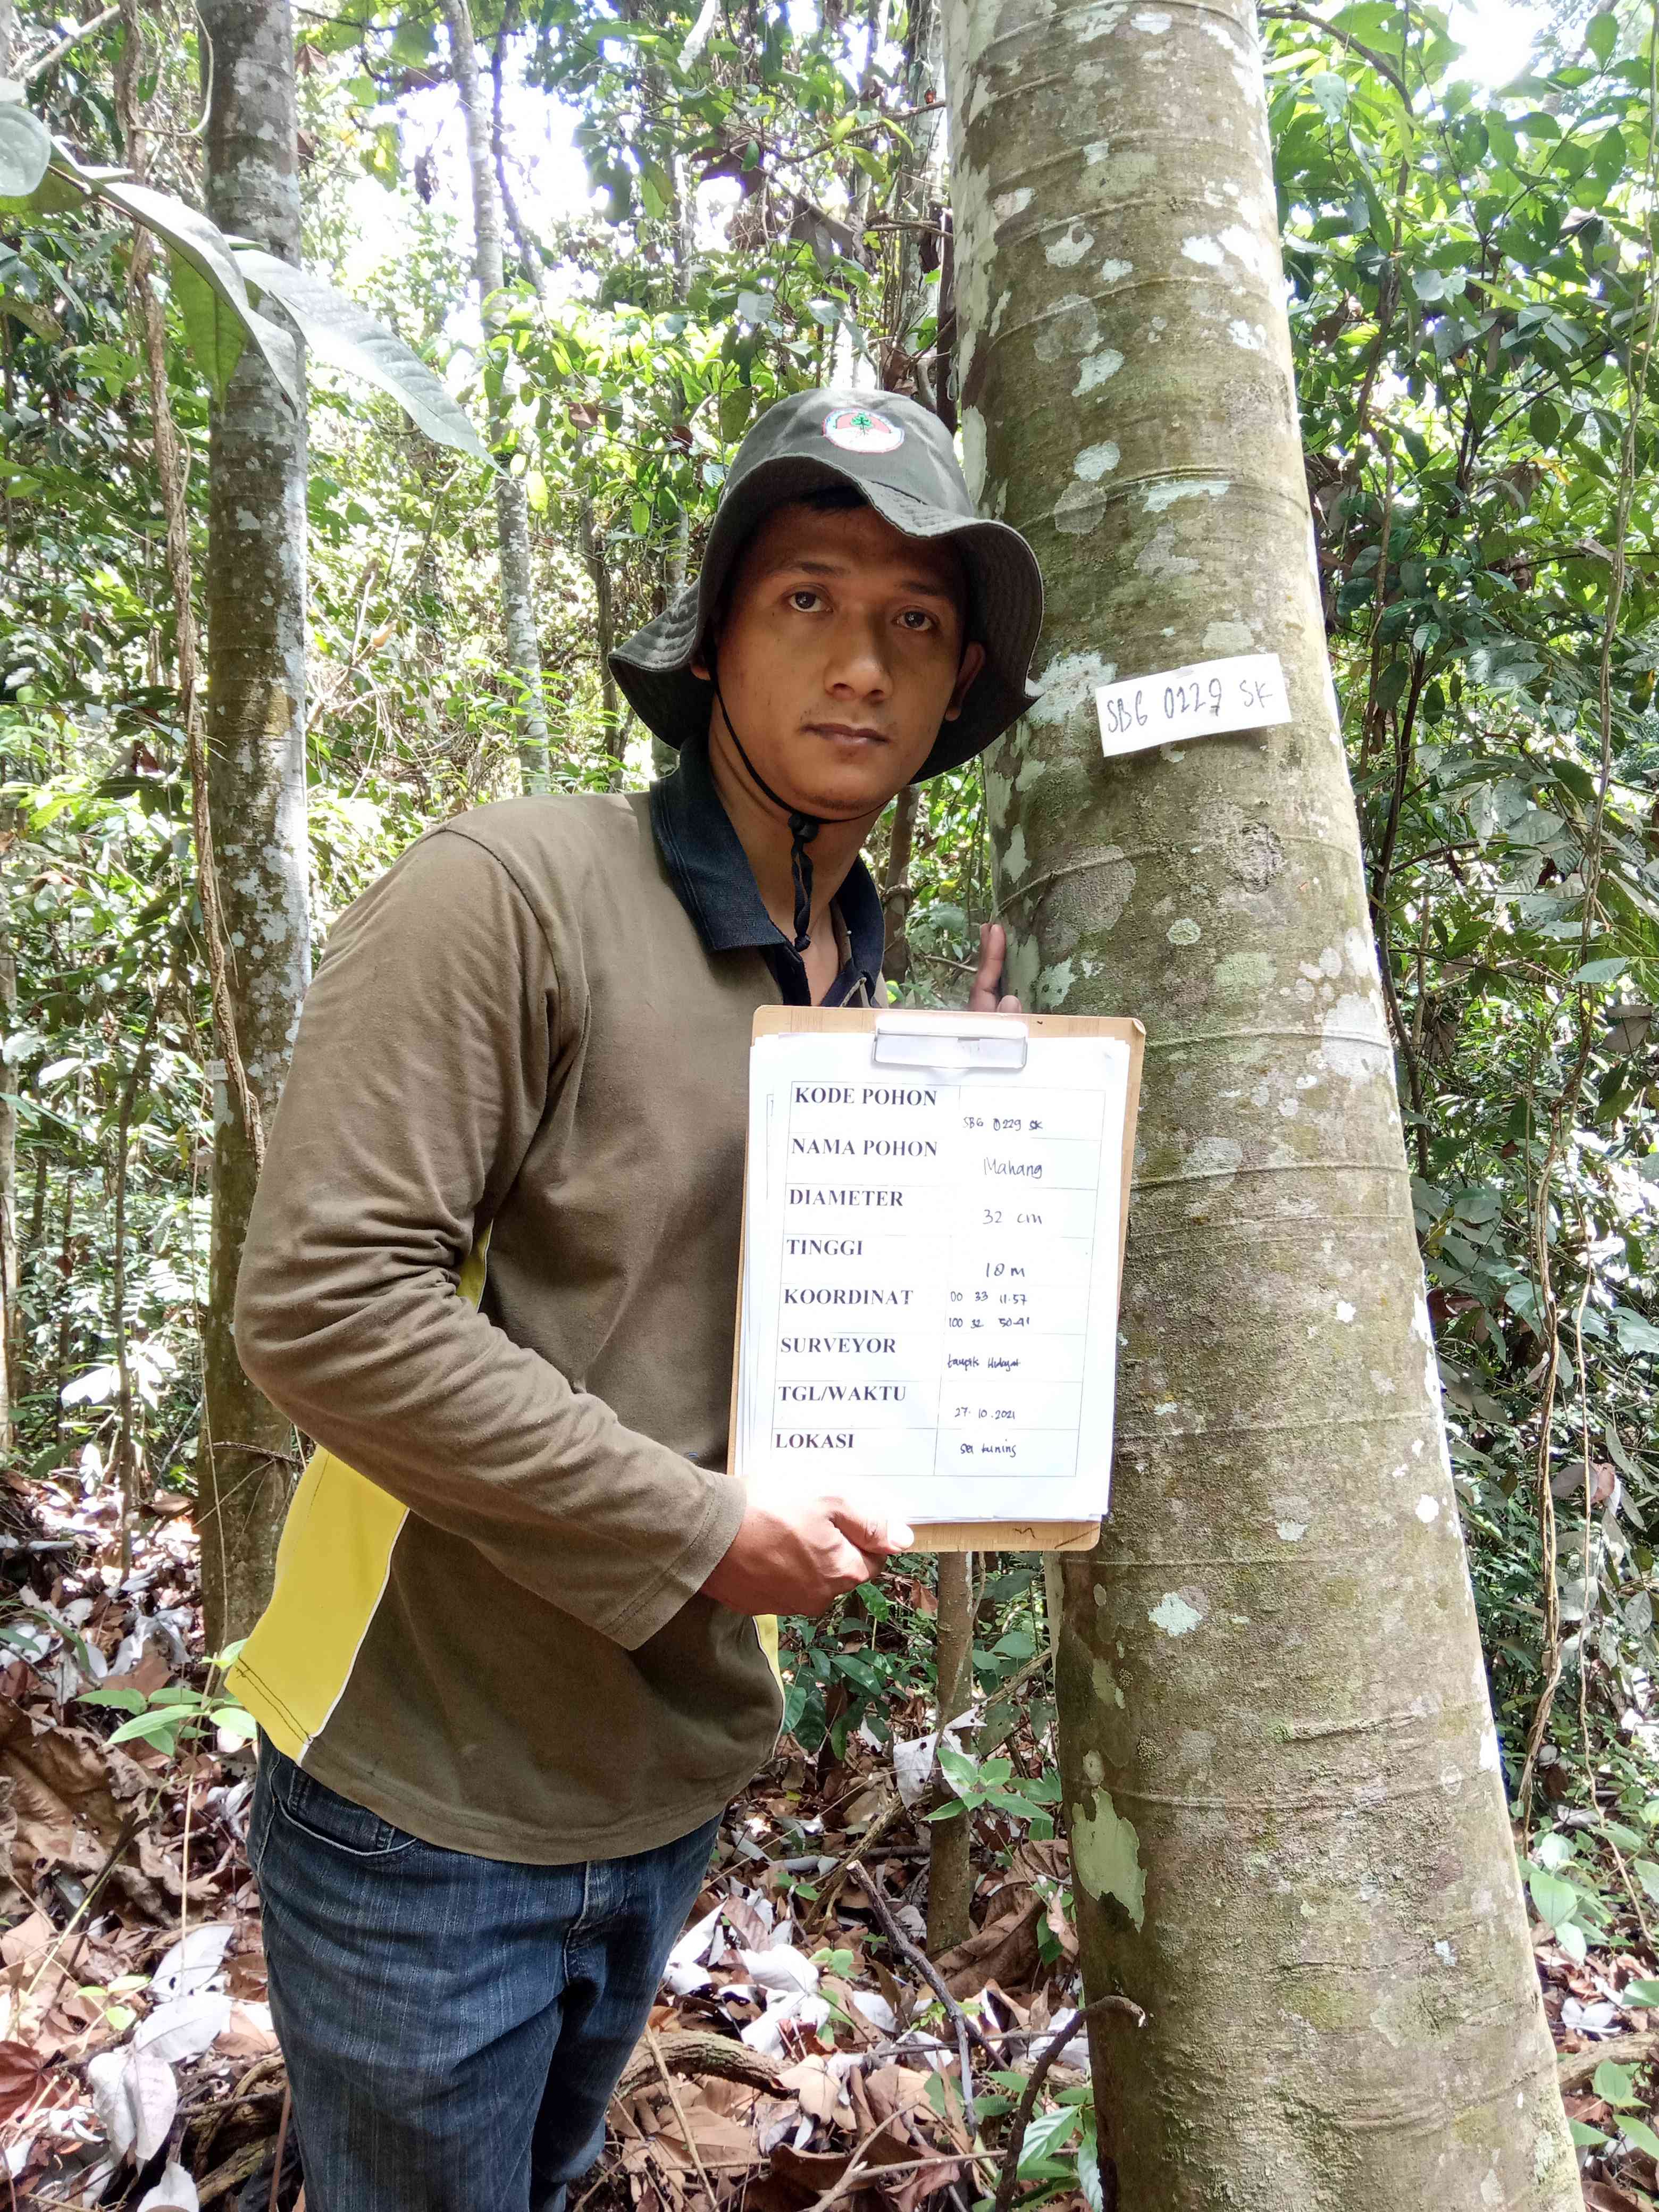 SBG 0229 SK
KODE POHON SBG 0229 SK
NAMA POHON Mahang
DIAMETER 32 cm
TINGGI 18 m
KOORDINAT 00 33 11.57
100 32 50.41
SURVEYOR taupik Hidayat
TGL/WAKTU 27.10.2021
LOKASI sei kuning